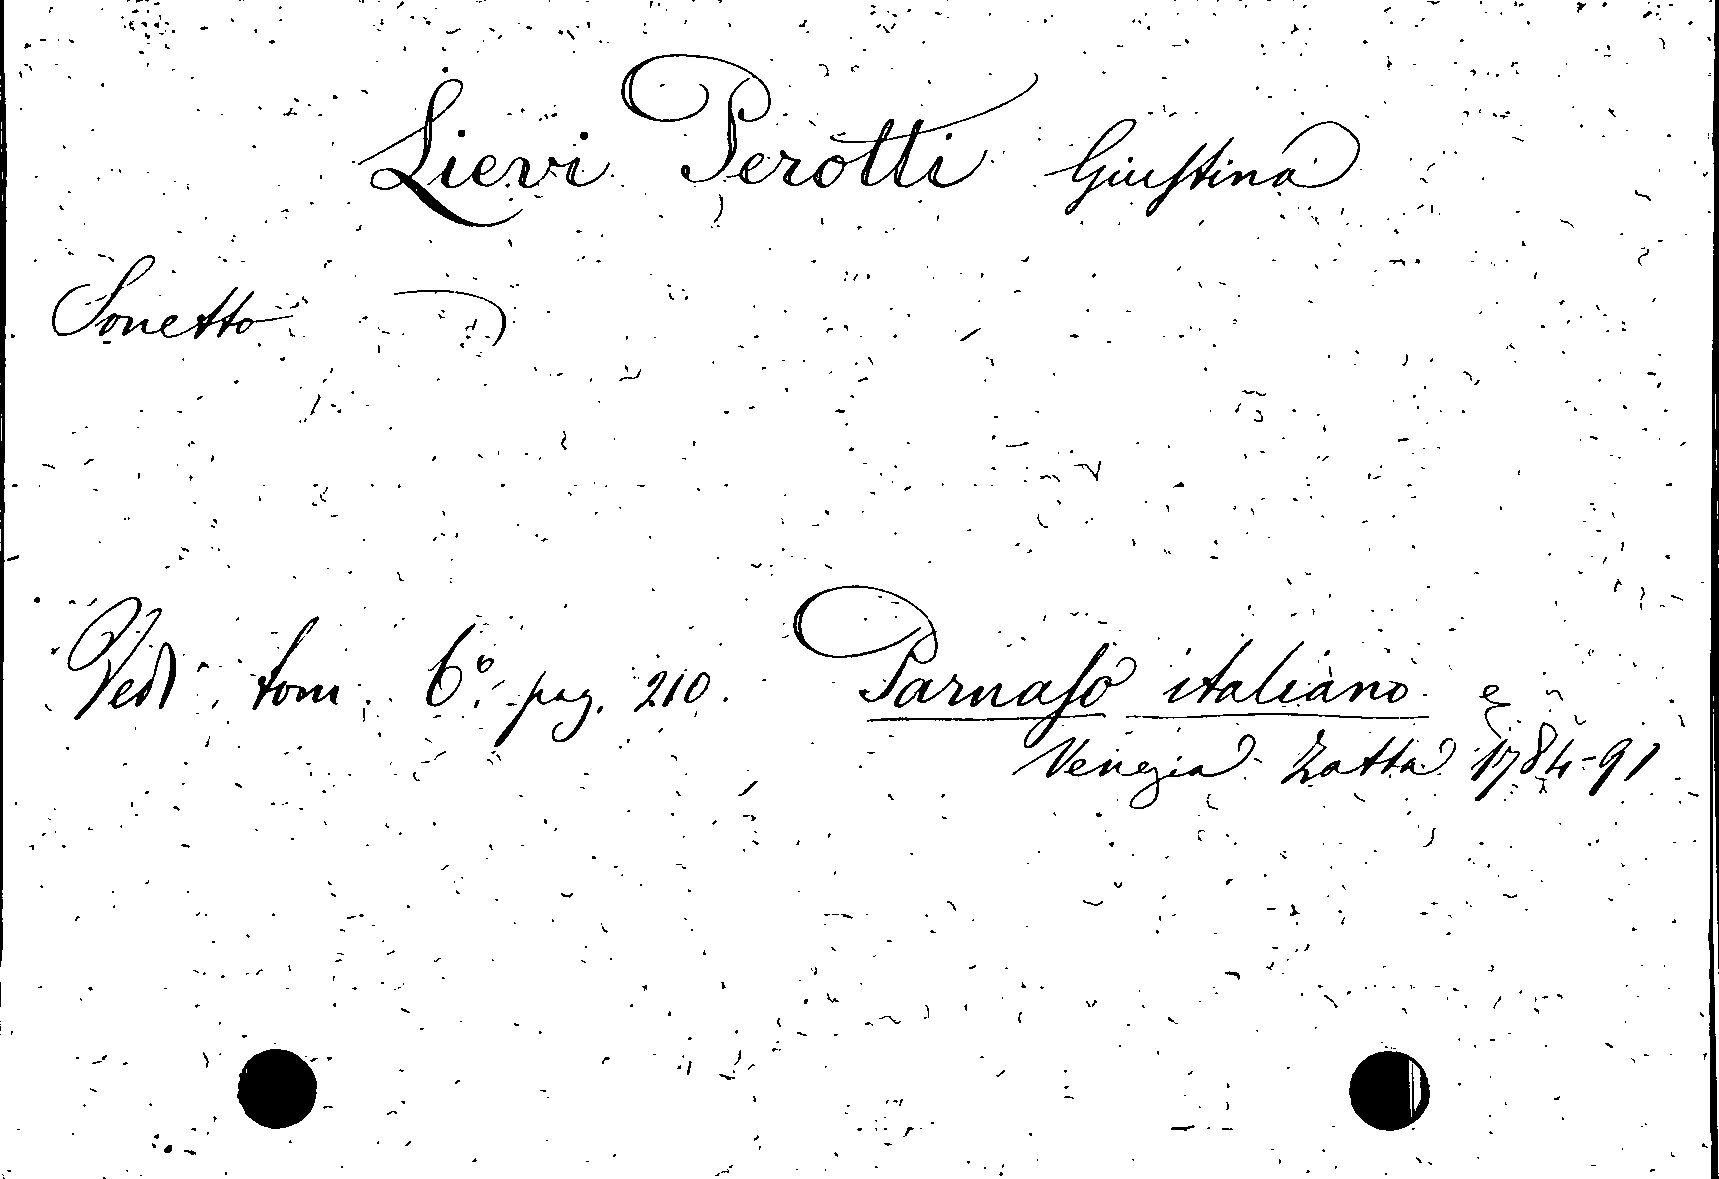 Lievi Perotti Giustina
Sonetto
Vedi tom. 6.° pag. 210. Parnaso italiano
Venezia Zatta 1784-91